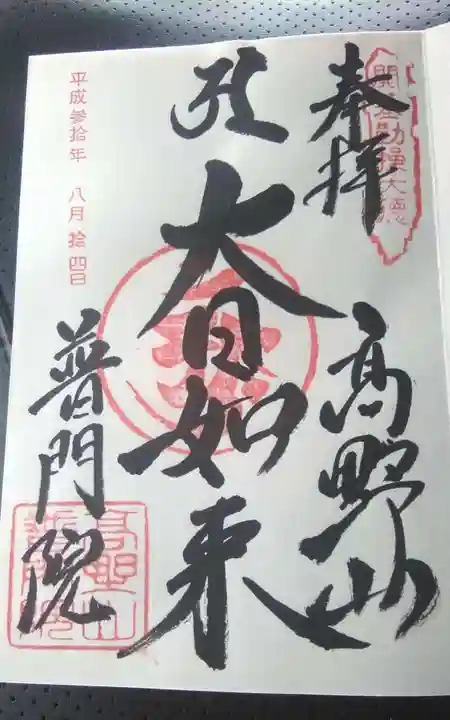 開基勤操大徳
奉拝
高野山
大日如来
平成参拾年 八月拾四日
普門院
高野山
普門院